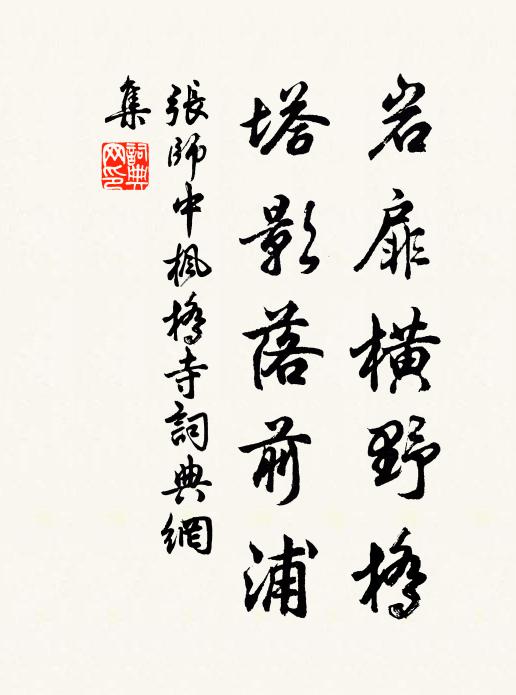 岩扉橫野橋
塔影落前浦
張師中楓橋寺詞典網
集
詞典
网印